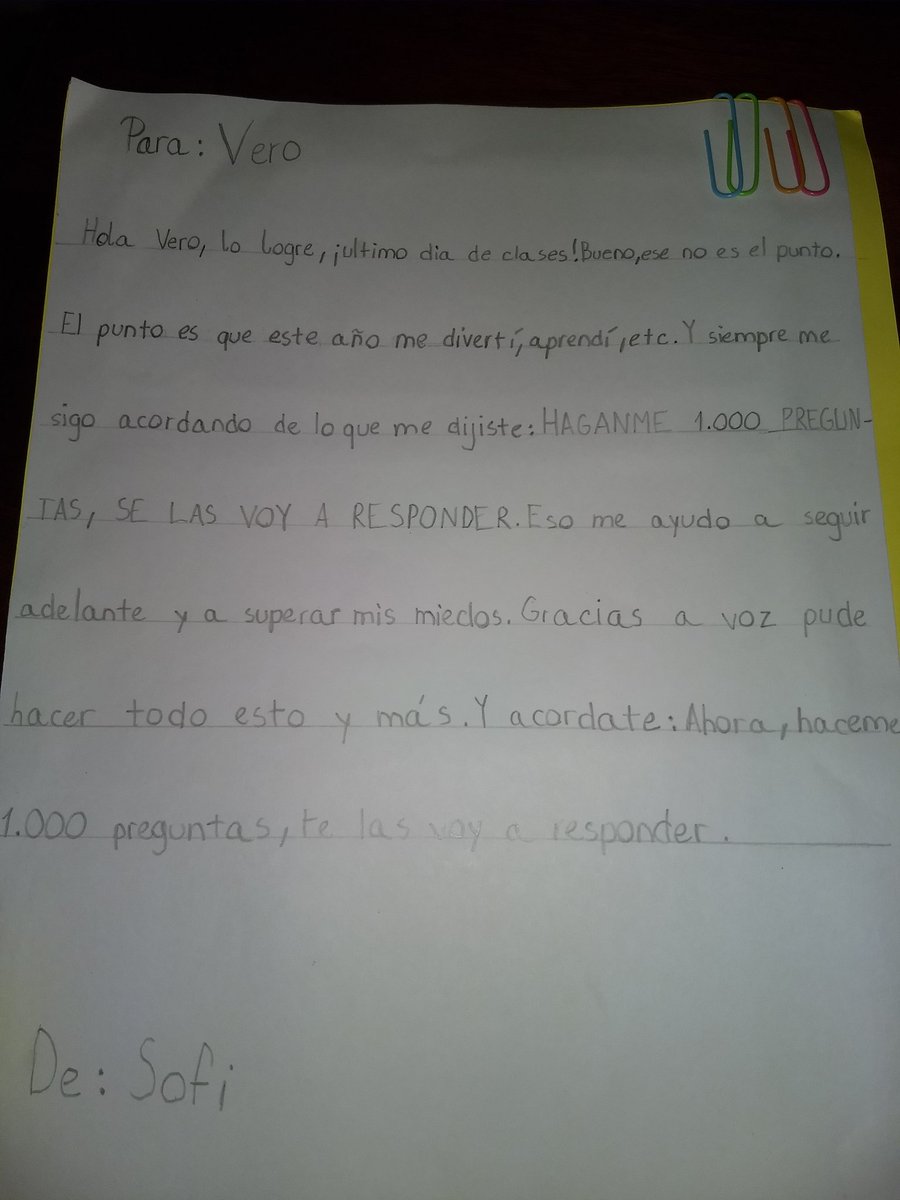 Para: Vero
Hola Vero, lo logre, ¡ultimo dia de clases! Bueno, ese no es el punto.
El punto es que este año me divertí, aprendí, etc. Y siempre me
sigo acordando de lo que me dijiste: HAGANME 1.000 PREGUN-
TAS, SE LAS VOY A RESPONDER. Eso me ayudo a seguir
adelante y a superar mis miedos. Gracias a voz pude
hacer todo esto y más. Y acordate: Ahora, haceme
1.000 preguntas, te las voy a responder.
De: Sofi